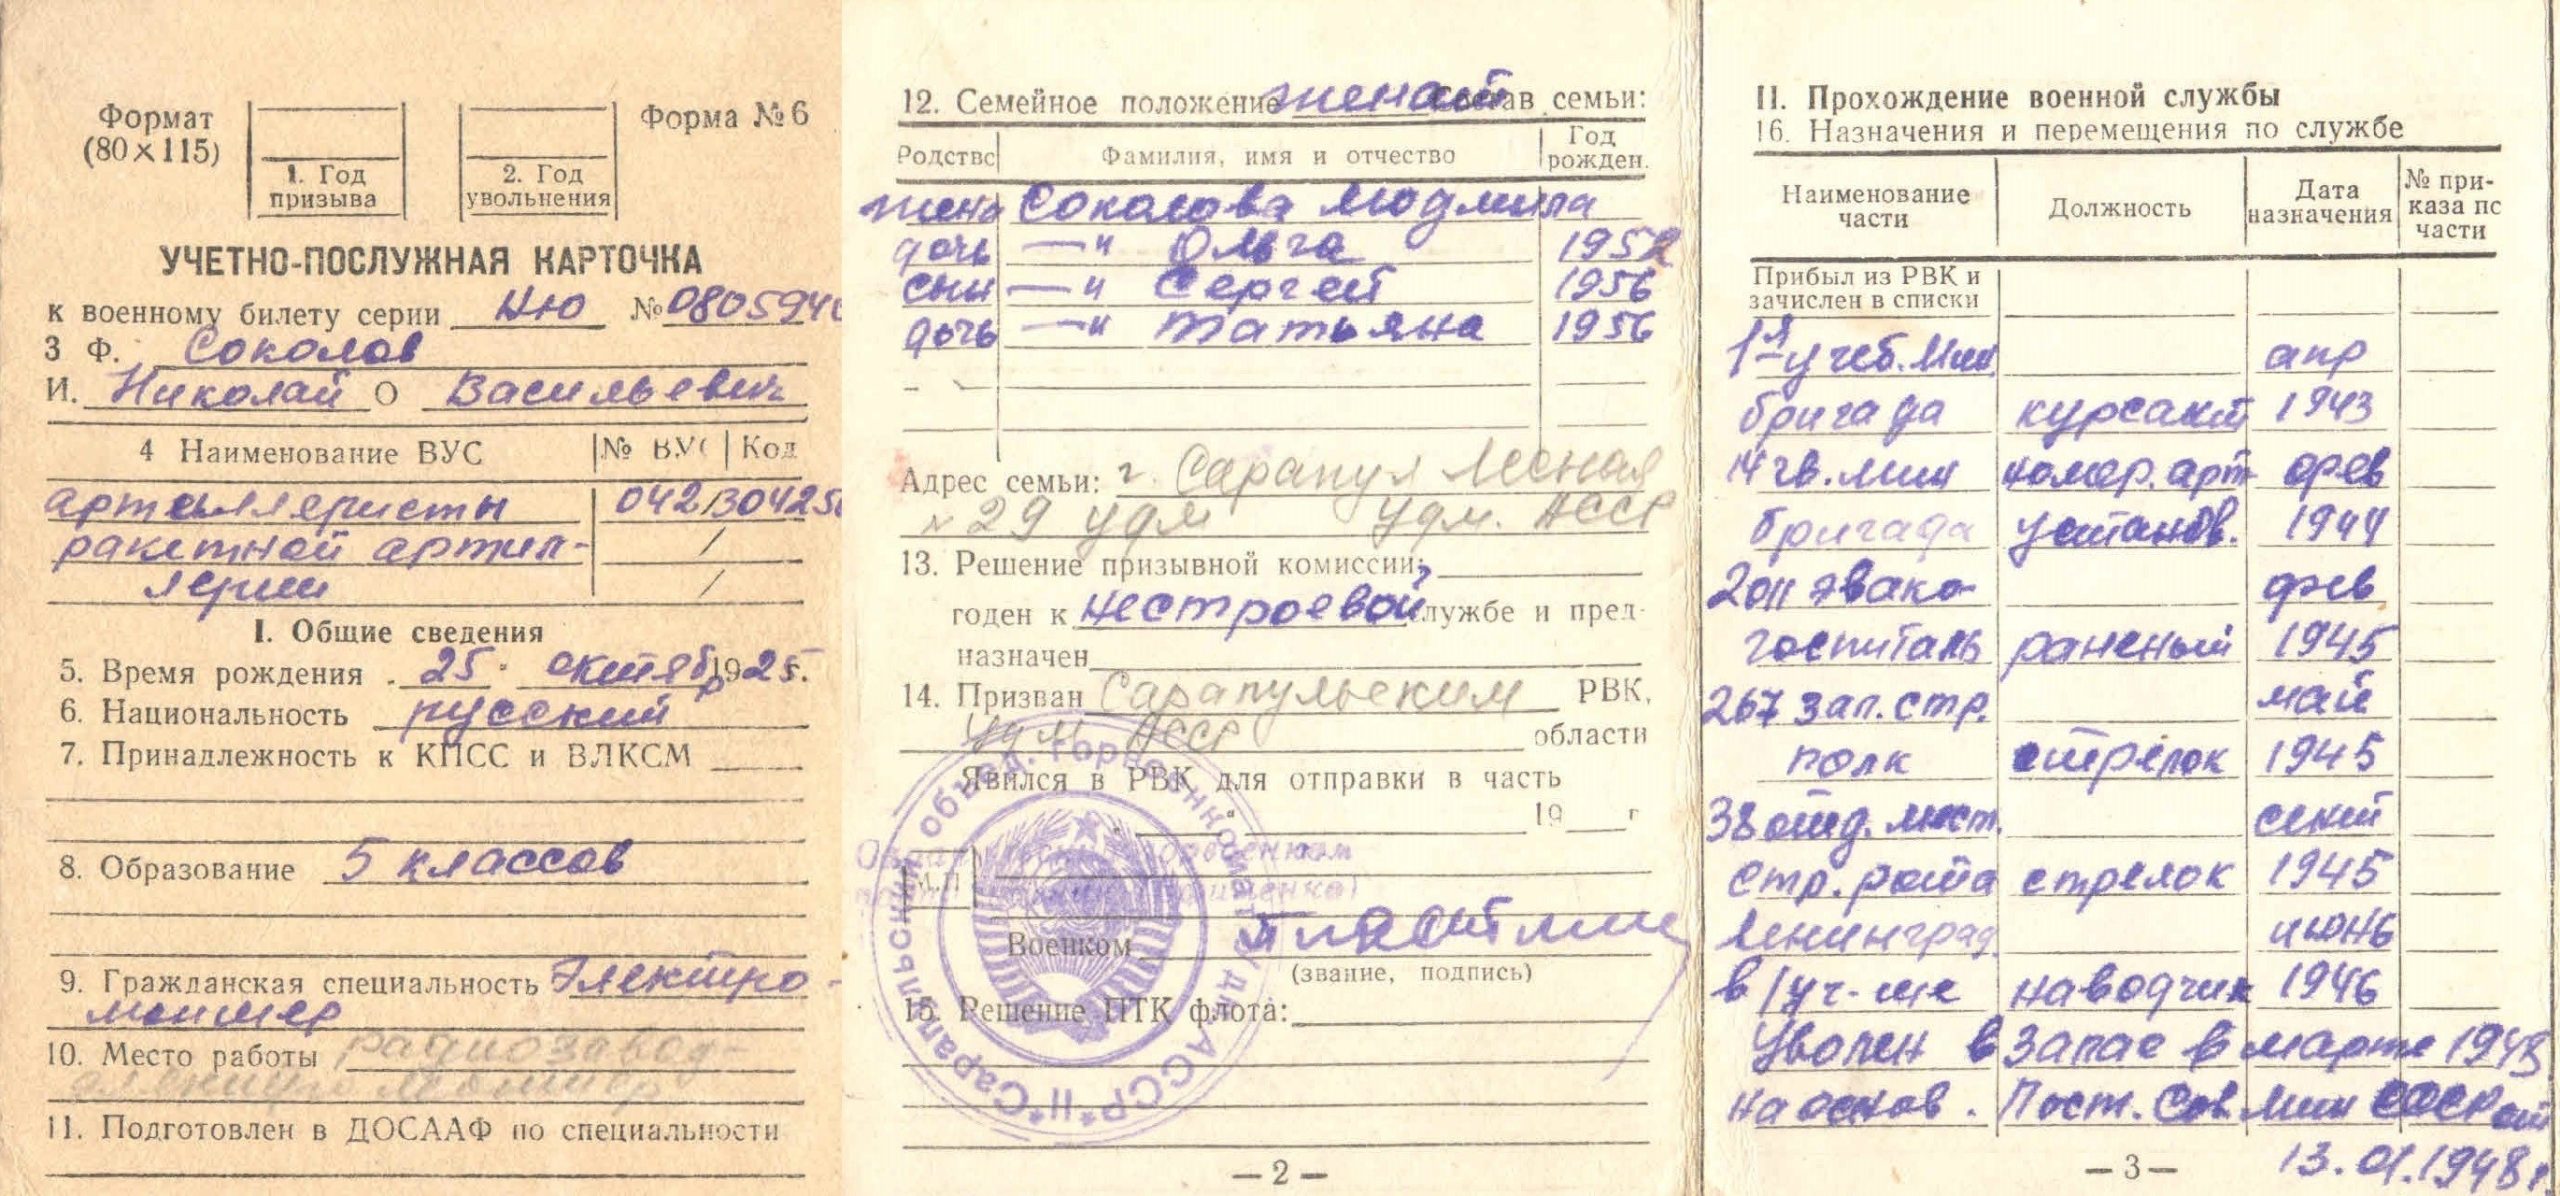 Формат
(80×115)
1. Год
призыва
2. Год
увольнения
Форма №6
УЧЕТНО-ПОСЛУЖНАЯ КАРТОЧКА
к военному билету серии НЮ № 080594
3 Ф. Соколов
И. Николай О Васильевич
4 Наименование ВУС № ВУС Код
артиллеристы 042130425
ракетной артил-
лерии
I. Общие сведения
5. Время рождения 25 октябр 1925 г.
6. Национальность русский
7. Принадлежность к КПСС и ВЛКСМ
8. Образование 5 классов
9. Гражданская специальность Электро-
монтер
10. Место работы радиозавод-
электромонтер
11. Подготовлен в ДОСААФ по специальности
12. Семейное положение женат Состав семьи:
Родство Фамилия, имя и отчество Год рожден.
жена Соколова Людмила
дочь —"— Ольга 1952
сын —"— Сергей 1956
дочь —"— Татьяна 1956
Адрес семьи: г. Сарапул Лесная
№ 29 удм Удм. АССР
13. Решение призывной комиссии:
годен к нестроевой службе и пред-
назначен
14. Призван Сарапульским РВК,
Удм АССР области
Явился в РВК для отправки в часть
19 г
М.П
Военком
(звание, подпись)
15. Решение ПТК флота:
— 2 —
II. Прохождение военной службы
16. Назначения и перемещения по службе
Наименование части Должность Дата назначения № при-каза пс части
Прибыл из РВК и
зачислен в списки
1я учеб. мин. апр
бригада курсант 1943
14 гв. мин номер. арт фев
бригада установ. 1944
2011 эвако- фев
госпиталь раненый 1945
267 зап. стр. май
полк стрелок 1945
38 отд. мест. сент
стр. рота стрелок 1945
Ленинград. июнь
в/уч-ще наводчик 1946
Уволен в запас в марте 1948
на основ. Пост. Сов. Мин СССР от
— 3 —
13.01.1948г.